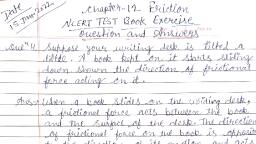 Date
15 Jan 2022
Chapter-12 Friction
NCERT TEST Book Exercise
Question and Answers
Suppose your writing desk is tilted a
little. A book kept on it starts sliding
down shown the direction of frictional
force acting on it.
when a book slides on the writing desk,
a frictional force acts between the book
and the surface of the desk. The direction
of frictional force on the book is opposite
to the direction of its motion and acts